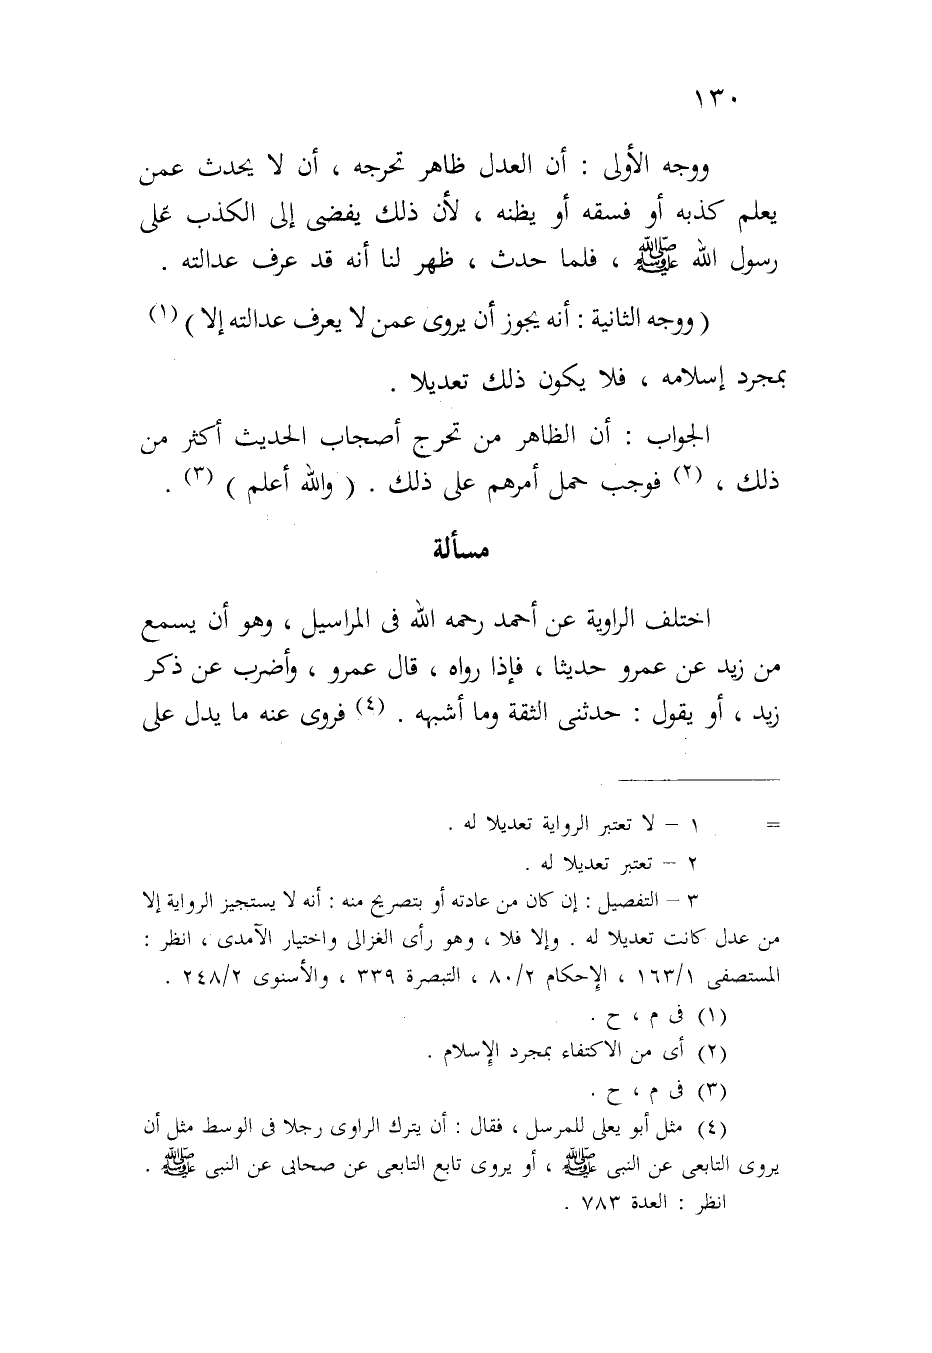 ١٣٠
ووجه الأولى : أن العدل ظاهر تحرجه ، أن لا يحدث عمن
يعلم كذبه أو فسقه أو يظنه ، لأن ذلك يفضى إلى الكذب على
رسول الله ﷺ ، فلما حدث ، ظهر لنا أنه قد عرف عدالته .
( ووجه الثانية : أنه يجوز أن يروى عمن لا يعرف عدالته إلا ) (١)
بمجرد إسلامه ، فلا يكون ذلك تعديلا .
الجواب : أن الظاهر من تحرج أصحاب الحديث أكثر من
ذلك ، (٢) فوجب حمل أمرهم على ذلك . ( والله أعلم ) (٣) .
مسألة
اختلف الراوية عن أحمد رحمه الله فى المراسيل ، وهو أن يسمع
من زيد عن عمرو حديثا ، فإذا رواه ، قال عمرو ، وأضرب عن ذكر
زيد ، أو يقول : حدثنى الثقة وما أشبهه . (٤) فروى عنه ما يدل على
= ١ – لا تعتبر الرواية تعديلا له .
٢ – تعتبر تعديلا له .
٣ – التفصيل : إن كان من عادته أو بتصريح منه : أنه لا يستجيز الرواية إلا
من عدل كانت تعديلا له . وإلا فلا ، وهو رأى الغزالى واختيار الآمدى ، انظر :
المستصفى ١٦٣/١ ، الإحكام ٨٠/٢ ، التبصرة ٣٣٩ ، والأسنوى ٢٤٨/٢ .
(١) فى م ، ح .
(٢) أى من الاكتفاء بمجرد الإسلام .
(٣) فى م ، ح .
(٤) مثل أبو يعلى للمرسل ، فقال : أن يترك الراوى رجلا فى الوسط مثل أن
يروى التابعى عن النبى ﷺ ، أو يروى تابع التابعى عن صحابى عن النبى ﷺ .
انظر : العدة ٧٨٣ .